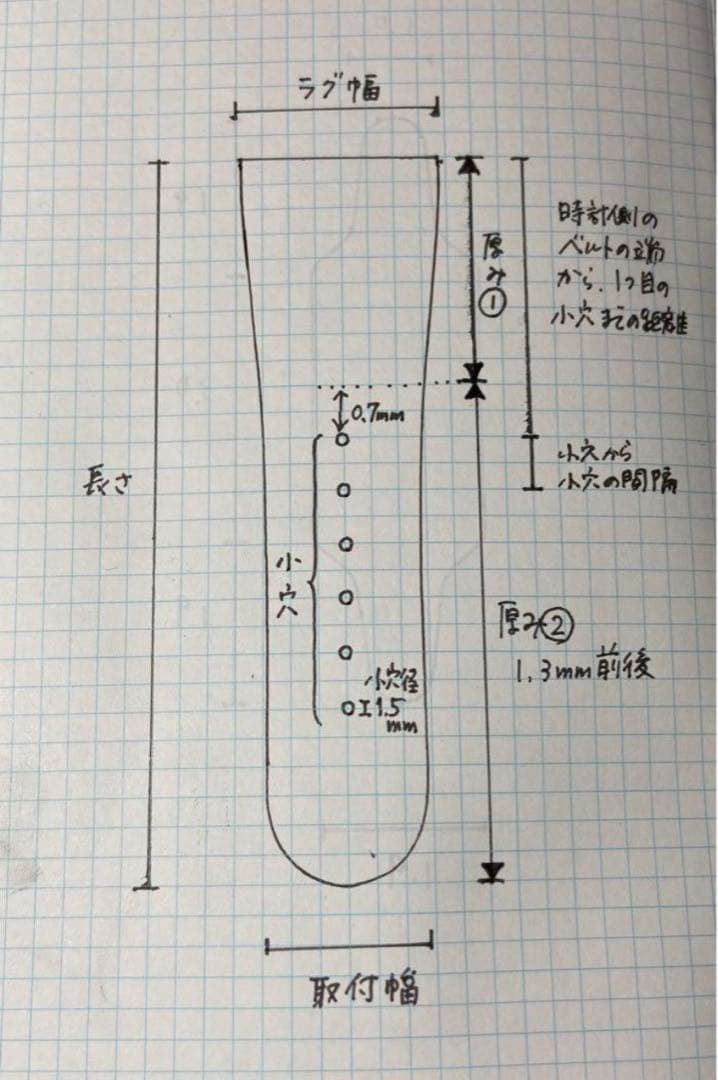 ラグ幅
時計側の
ベルトの立端
から、1つ目の
小穴までの距離
厚み①
0.7mm
小穴から
小穴の間隔
長さ
小穴
厚み②
1.3mm前後
小穴径
1.5
mm
取付幅